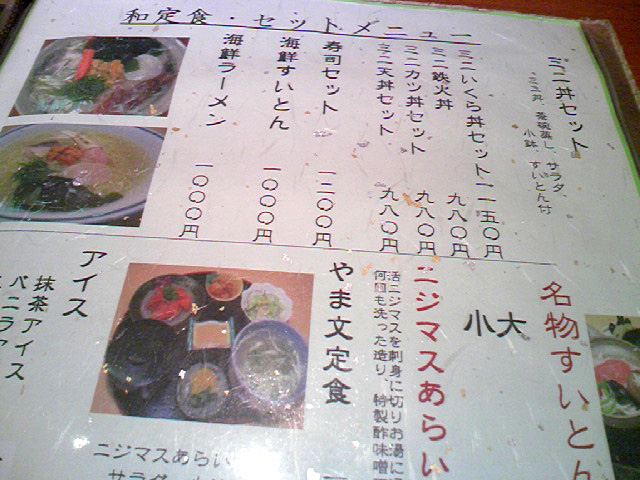 和定食・セットメニュー
ミニ丼セット
ミニ丼、茶碗蒸し、サラダ、
小鉢、すいとん付
ミニいくら丼セット 一一五〇円
ミニ鉄火丼 九八〇円
ミニカツ丼セット 九八〇円
ミニ天丼セット 九八〇円
寿司セット 一二〇〇円
海鮮すいとん 一〇〇〇円
海鮮ラーメン 一〇〇〇円
名物すいとん
大
小
ニジマスあらい
活ニジマスを刺身に切りお湯に
何回も洗った造り。特製酢味噌
やま文定食
ニジマスあらい
サラダ
アイス
抹茶アイス
バニラア